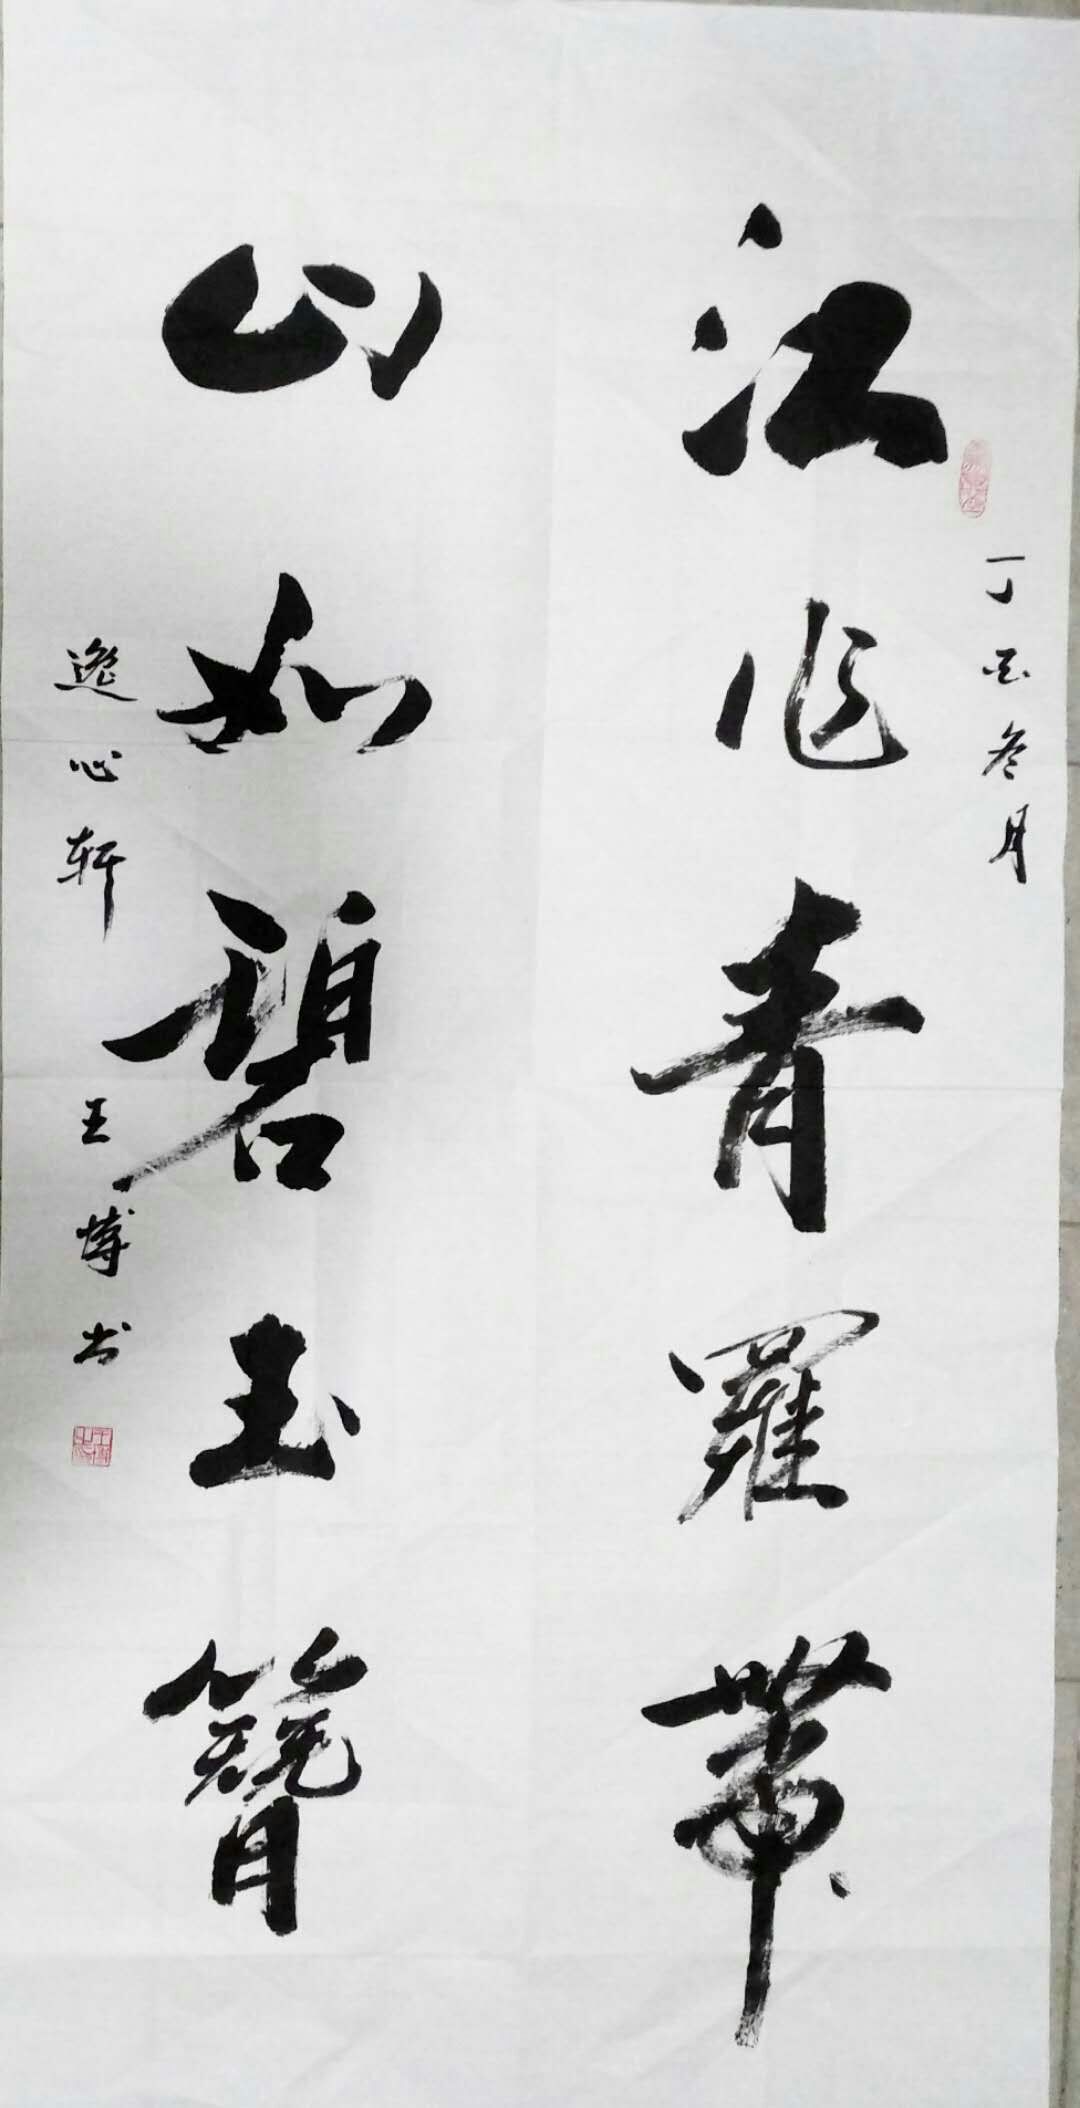 江作青羅帶
丁酉冬月
山如碧玉簪
逸心軒 王博书